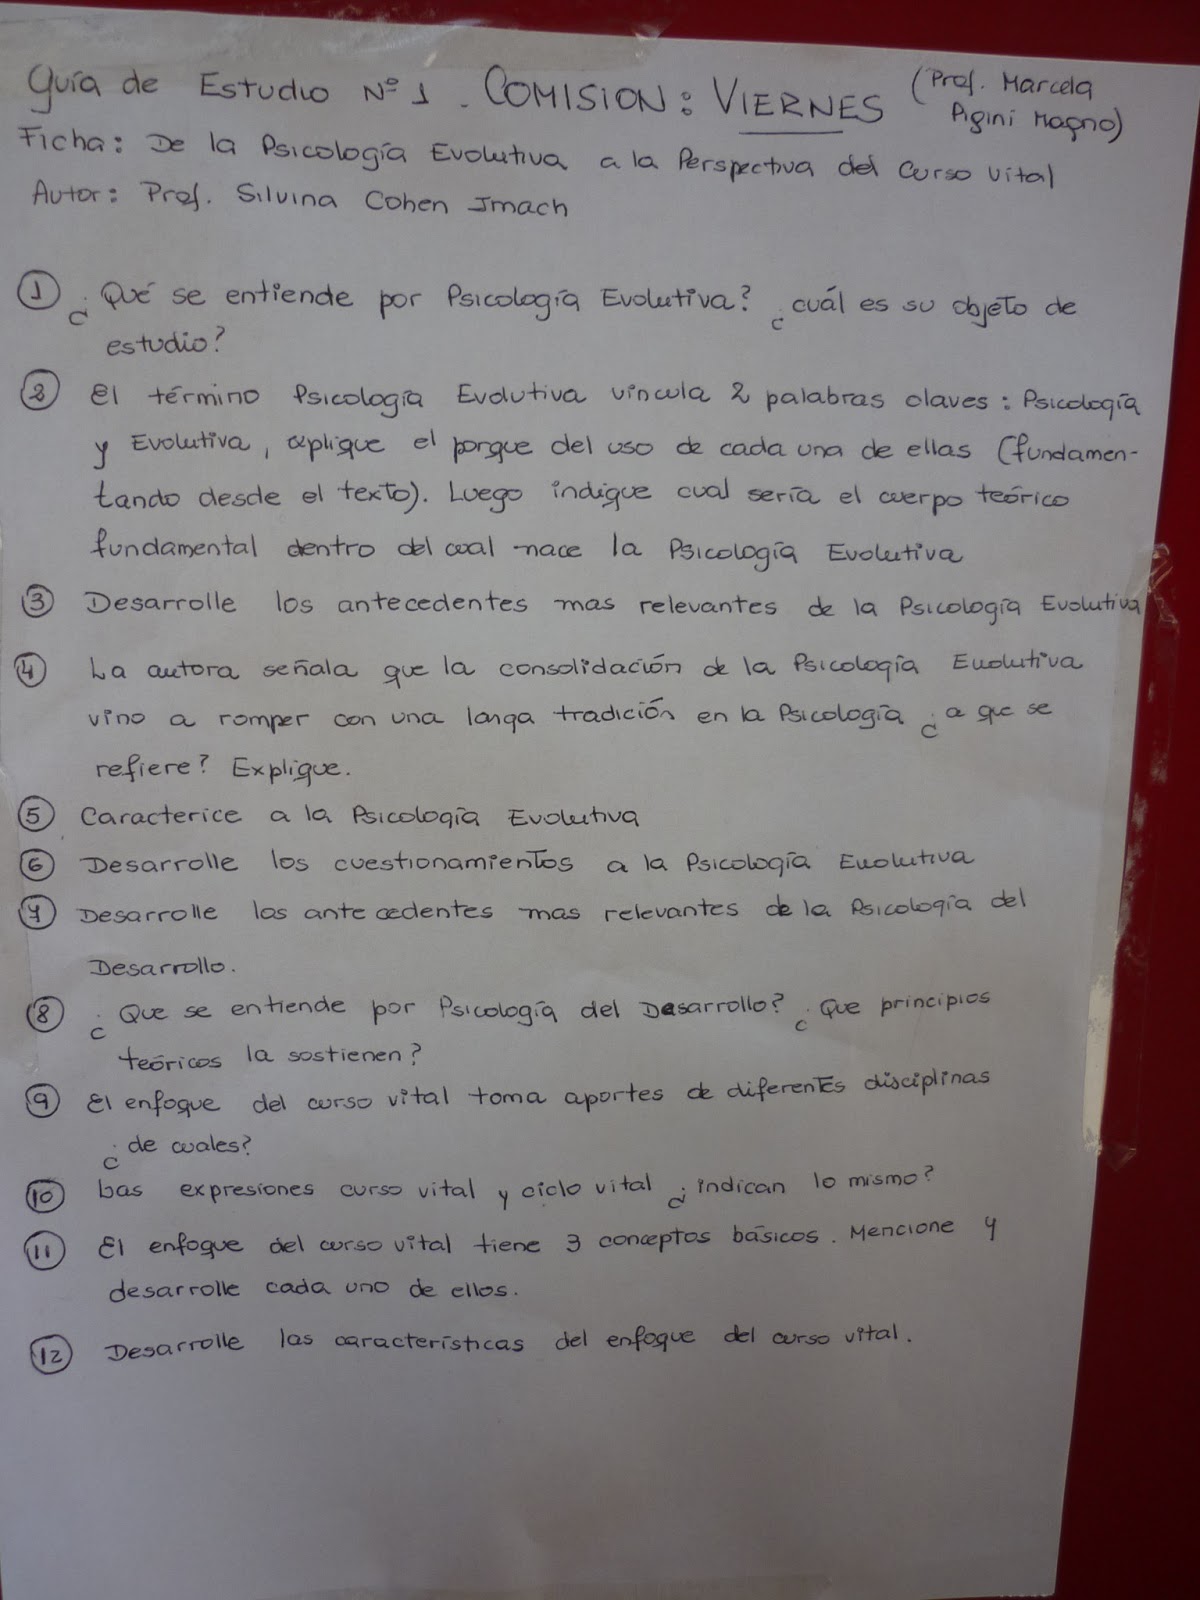 Guía de Estudio Nº 1. COMISION: VIERNES (Prof. Marcela
Pigini Magno)
Ficha: De la Psicología Evolutiva a la Perspectiva del curso vital
Autor: Prof. Silvina Cohen Imach
① ¿Qué se entiende por Psicología Evolutiva? ¿cuál es su objeto de
estudio?
② El término Psicología Evolutiva vincula 2 palabras claves: Psicología
y Evolutiva, explique el porque del uso de cada una de ellas (fundamen-
tando desde el texto). Luego indique cual sería el cuerpo teórico
fundamental dentro del cual nace la Psicología Evolutiva
③ Desarrolle los antecedentes mas relevantes de la Psicología Evolutiva
④ La autora señala que la consolidación de la Psicología Evolutiva
vino a romper con una larga tradición en la Psicología ¿a que se
refiere? Explique.
⑤ Caracterice a la Psicología Evolutiva
⑥ Desarrolle los cuestionamientos a la Psicología Evolutiva
⑦ Desarrolle los antecedentes mas relevantes de la Psicología del
Desarrollo.
⑧ ¿Que se entiende por Psicología del Desarrollo? ¿Que principios
teóricos la sostienen?
⑨ El enfoque del curso vital toma aportes de diferentes disciplinas
¿de cuales?
⑩ Las expresiones curso vital y ciclo vital ¿indican lo mismo?
⑪ El enfoque del curso vital tiene 3 conceptos básicos. Mencione y
desarrolle cada uno de ellos.
⑫ Desarrolle las características del enfoque del curso vital.